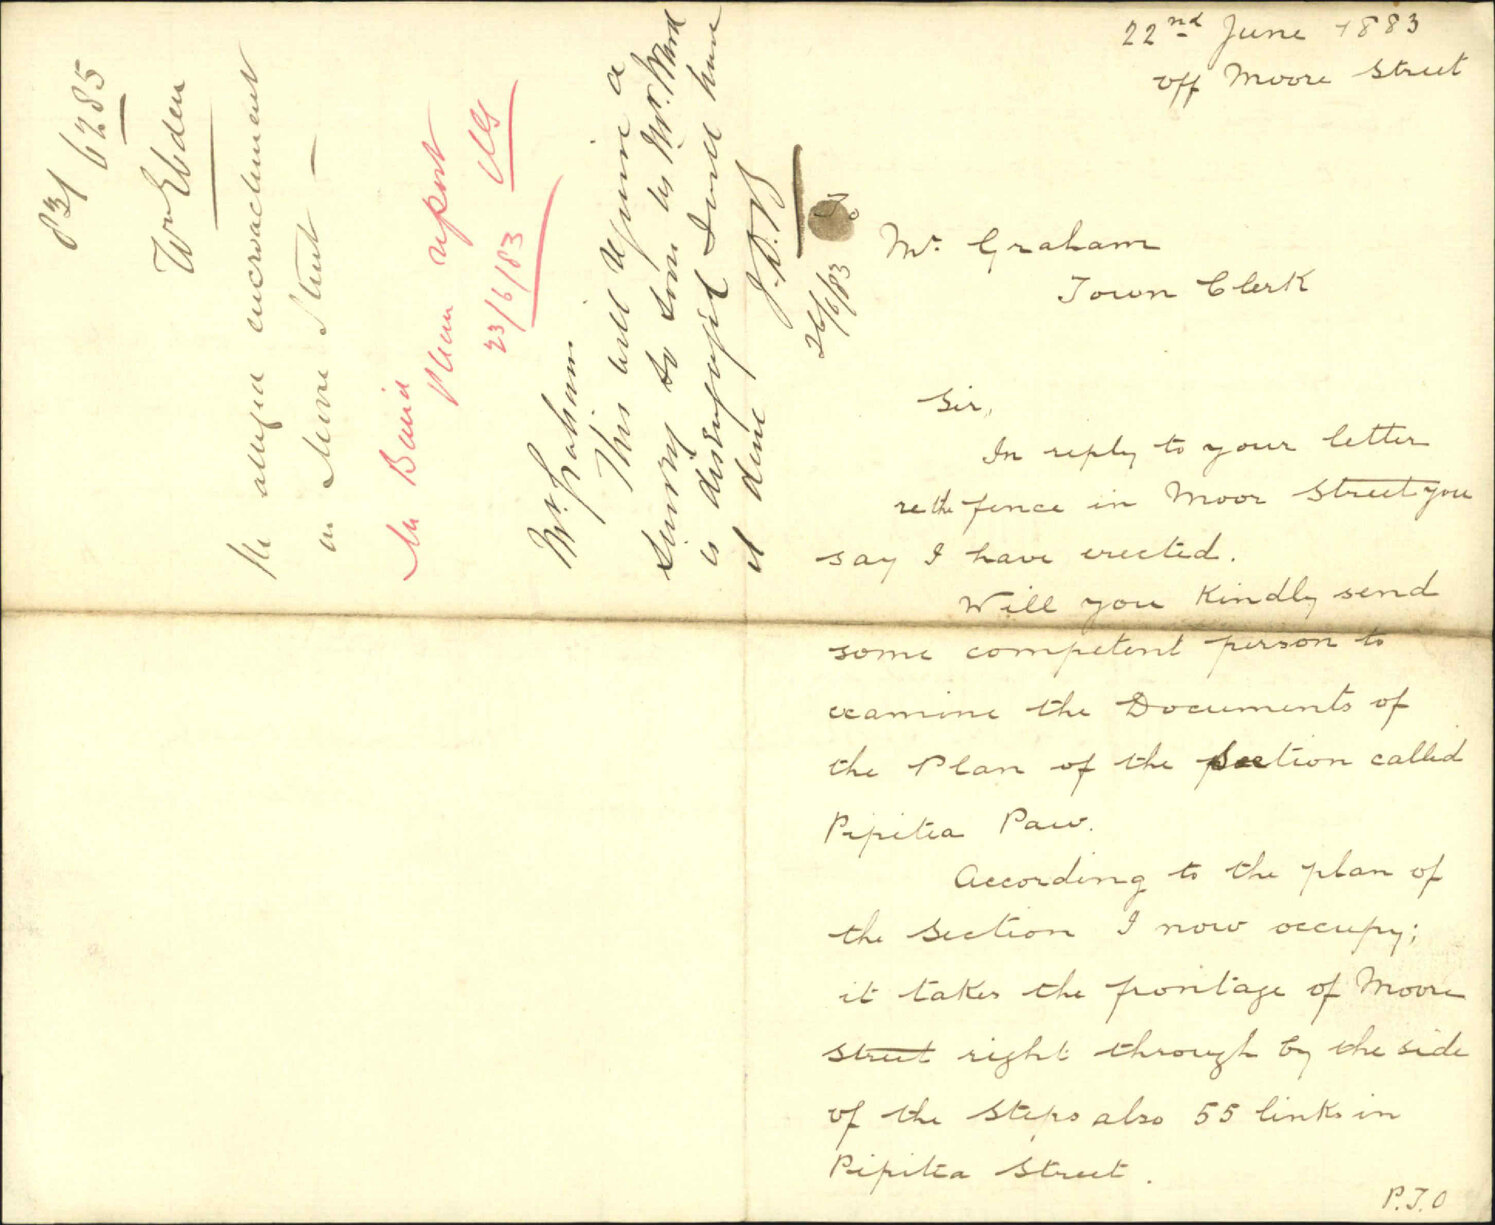 22nd June 1883
off Moore Street
To
Mr. Graham
Town Clerk
Sir,
In reply to your letter
re the fence in Moor Street you
say I have erected.
Will you Kindly send
some competent person to
examine the Documents of
the Plan of the Section called
Pipitea Paw.
According to the plan of
the Section I now occupy;
it takes the frontage of Moore
Street right through by the side
of the Steps also 55 links in
Pipitea Street.
P.T.O
83/6285
Wm Eden
Re alleged encroachment
in Moore Street —
Mr Baird
Please report
23/6/83
Mr. Graham
This will require a
Survey so soon as Mr. Ward
is disengaged I will have
it done
J.D.B
26/6/83